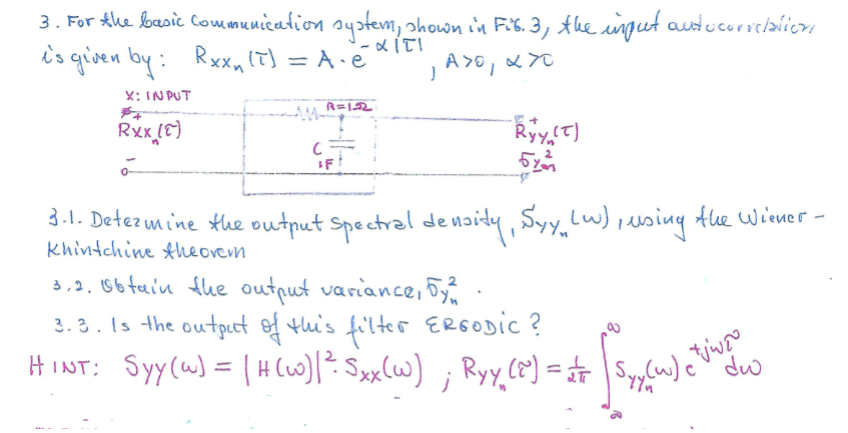 3. For the basic Communication system, shown in Fig. 3, the input autocorrelation
is given by: Rxxₙ(τ) = A·e^(-α|τ|), A>0, α>0
X: INPUT
R=1Ω
+
Rxxₙ(τ)
+
Ryyₙ(τ)
C
1F
σyₙ²
-
3.1. Determine the output spectral density, Syyₙ(ω), using the Wiener-
Khintchine theorem
3.2. Obtain the output variance, σyₙ².
3.3. Is the output of this filter ERGODIC?
HINT: Syy(ω) = |H(ω)|²·Sxx(ω) ; Ryyₙ(τ) = 1/2π ∫_{-∞}^{∞} Syyₙ(ω) e^(+jωτ) dω